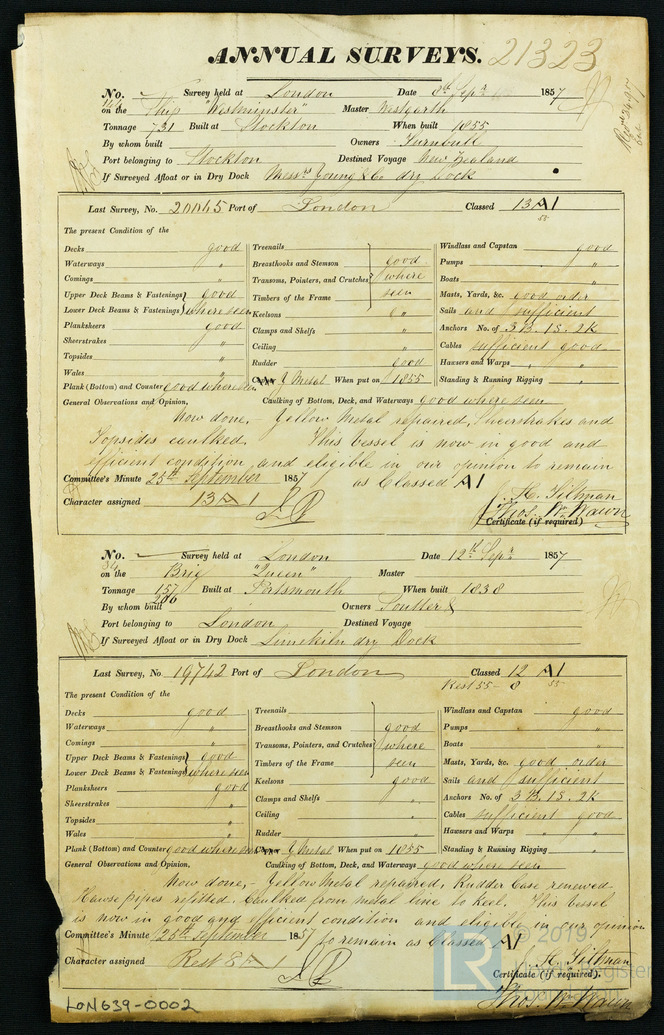 ANNUAL SURVEYS. 21323
No. Survey held at London Date 8th Sepr 1857
on the Ship "Westminster" Master Westgarth
Tonnage 731 Built at Stockton When built 1855
By whom built Owners Turnbull
Port belonging to Stockton Destined Voyage New Zealand
If Surveyed Afloat or in Dry Dock Messrs Young & Co dry Dock
Last Survey, No. 20045 Port of London Classed 13 A1
55
The present Condition of the
Decks good
Waterways "
Comings "
Upper Deck Beams & Fastenings } good
Lower Deck Beams & Fastenings } where seen
Planksheers good
Sheerstrakes "
Topsides "
Wales "
Plank (Bottom) and Counter good where seen
Treenails
Breasthooks and Stemson good
Transoms, Pointers, and Crutches where
Timbers of the Frame seen
Keelsons "
Clamps and Shelfs "
Ceiling "
Rudder good
Copper Y Metal When put on 1855
Windlass and Capstan good
Pumps "
Boats "
Masts, Yards, &c. good order
Sails and sufficient
Anchors No. of 3 B. 1 S. 2 K
Cables sufficient good
Hawsers and Warps " "
Standing & Running Rigging "
General Observations and Opinion, Caulking of Bottom, Deck, and Waterways good where seen
Now done. Yellow Metal repaired, Sheerstrakes and
Topsides caulked. This vessel is now in good and
efficient condition and eligible in our opinion to remain
Committee's Minute 25th September 1857 as Classed A1
Character assigned 13 A 1
H. Tillman
Thos. Wm Wawn
Certificate (if required)
No. Survey held at London Date 12th Sepr 1857
on the Brig "Queen" Master
Tonnage 157 Built at Portsmouth When built 1838
206
By whom built Owners Soutter &
Port belonging to London Destined Voyage
If Surveyed Afloat or in Dry Dock Limekiln dry Dock
Last Survey, No. 19742 Port of London Classed 12 A1
Rest 55 - 8 55
The present Condition of the
Decks good
Waterways "
Comings "
Upper Deck Beams & Fastenings } good
Lower Deck Beams & Fastenings } where seen
Planksheers good
Sheerstrakes "
Topsides "
Wales "
Plank (Bottom) and Counter good where seen
Treenails
Breasthooks and Stemson good
Transoms, Pointers, and Crutches where
Timbers of the Frame seen
Keelsons good
Clamps and Shelfs "
Ceiling "
Rudder "
Copper Y Metal When put on 1855
Windlass and Capstan good
Pumps "
Boats "
Masts, Yards, &c. good order
Sails and sufficient
Anchors No. of 3 B. 1 S. 2 K
Cables sufficient good
Hawsers and Warps " "
Standing & Running Rigging "
General Observations and Opinion, Caulking of Bottom, Deck, and Waterways good where seen
Now done,- Yellow Metal repaired, Rudder Case renewed.
Hawse pipes refitted. Caulked from metal line to Keel. This vessel
is now in good and efficient condition and eligible in our opinion
Committee's Minute 25th September 1857 to remain as Classed A1
Character assigned Rest 8 A 1
H. Tillman
Certificate (if required).
Thos. Wm Wawn
LON639-0002
LR © 2019